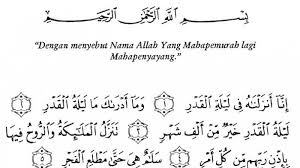 بِسْمِ اللَّهِ الرَّحْمَٰنِ الرَّحِيمِ
"Dengan menyebut Nama Allah Yang Mahapemurah lagi
Mahapenyayang."
إِنَّا أَنْزَلْنَاهُ فِي لَيْلَةِ الْقَدْرِ ١ وَمَا أَدْرَاكَ مَا لَيْلَةُ الْقَدْرِ ٢
لَيْلَةُ الْقَدْرِ خَيْرٌ مِنْ أَلْفِ شَهْرٍ ٣ تَنَزَّلُ الْمَلَائِكَةُ وَالرُّوحُ فِيهَا
بِإِذْنِ رَبِّهِمْ مِنْ كُلِّ أَمْرٍ ٤ سَلَامٌ هِيَ حَتَّىٰ مَطْلَعِ الْفَجْرِ ٥